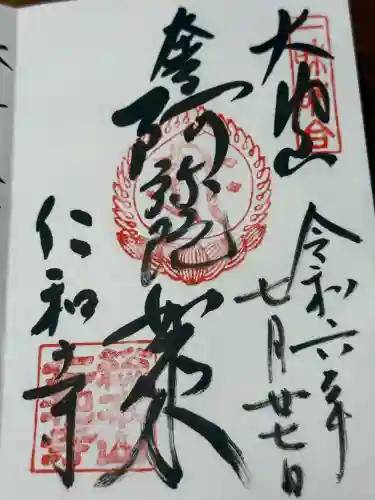 大内山
令和六年
七月廿七日
奉
阿弥陀如来
仁和寺